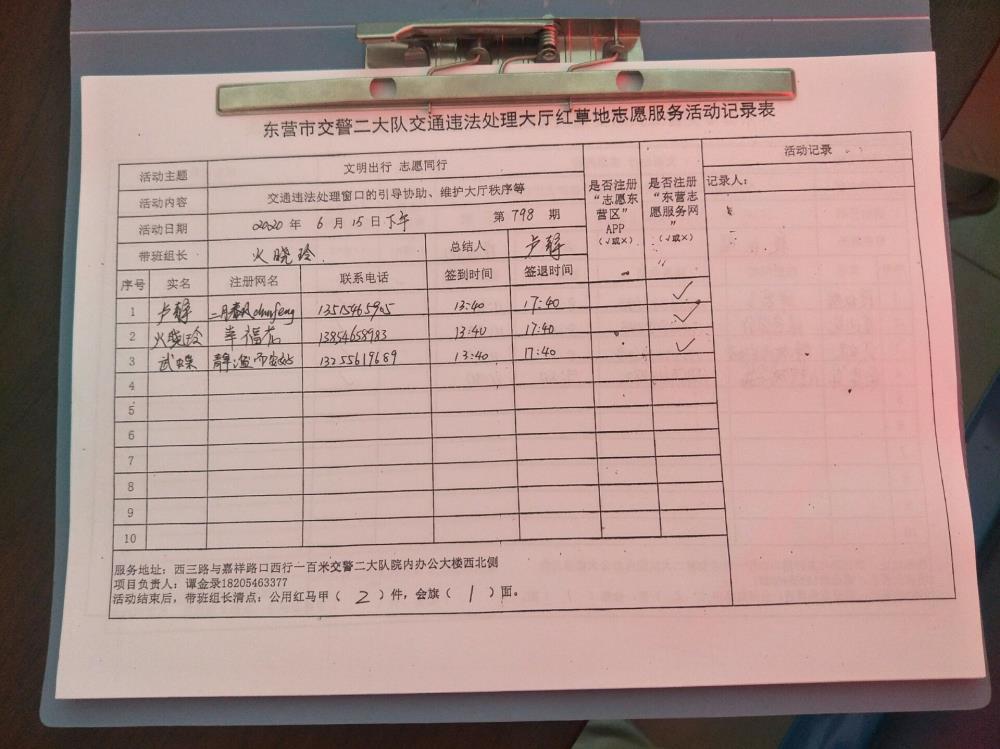 东营市交警二大队交通违法处理大厅红草地志愿服务活动记录表
活动主题 文明出行 志愿同行
活动内容 交通违法处理窗口的引导协助、维护大厅秩序等
活动日期 2020 年 6 月 15 日 下午 第 798 期
带班组长 火晓玲 总结人 卢静
是否注册“志愿东营区”APP(√或×)
是否注册“东营志愿服务网”(√或×)
活动记录
记录人:
序号 实名 注册网名 联系电话 签到时间 签退时间
1 卢静 二月春风chunfeng 13515465905 13:40 17:40 ✓
2 火晓玲 幸福右 13854658983 13:40 17:40 ✓
3 武 静 13255619689 13:40 17:40 ✓
4
5
6
7
8
9
10
服务地址：西三路与嘉祥路口西行一百米交警二大队院内办公大楼西北侧
项目负责人：谭金录18205463377
活动结束后，带班组长清点：公用红马甲（ 2 ）件，会旗（ 1 ）面。